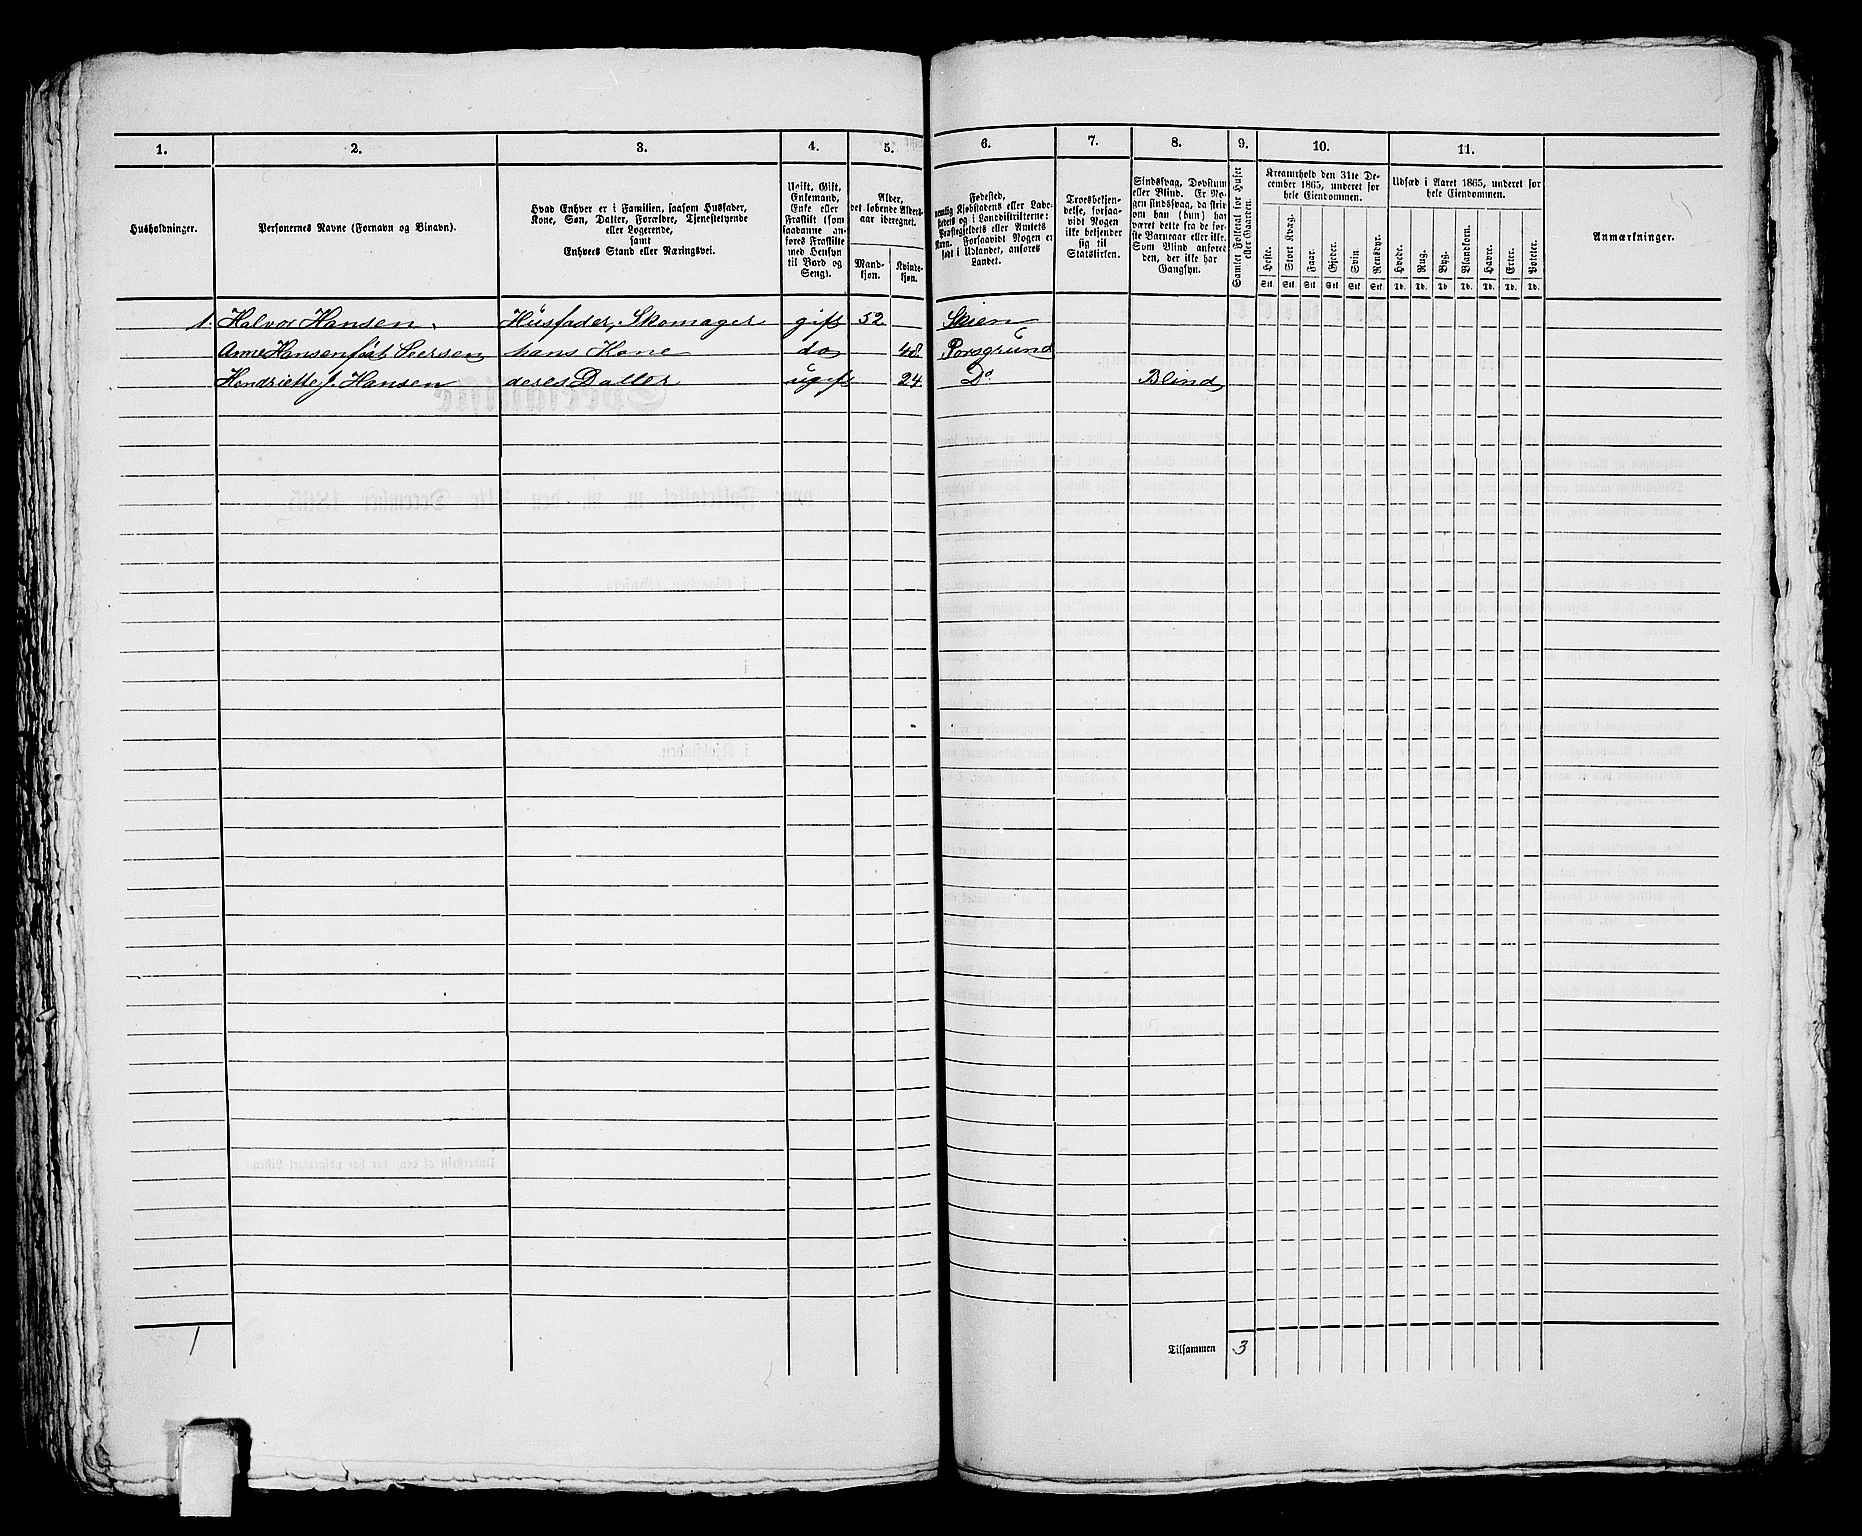 1. 2. 3. 4. 5. 6. 7. 8. 9. 10. 11.
Husholdninger.
Personernes Navne (Fornavn og Binavn).
Hvad Enhver er i Familien, saasom Husfader,
Kone, Søn, Datter, Forældre, Tjenestetyende
eller Logerende,
samt
Enhvers Stand eller Næringsvei.
Ugift, Gift,
Enkemand,
Enke eller
Fraskilt (som
saadanne an-
føres Fraskilte
med Hensyn
til Bord og
Seng).
Alder,
det løbende Alders-
aar iberegnet.
Mand-
kjøn.
Kvinde-
kjøn.
Fødested,
nemlig Kjøbstadens eller Lade-
stedets og i Landdistrikterne:
Præstegjeldets eller Amtets
Navn. Forsaavidt Nogen er
født i Udlandet, anføres
Landet.
Troesbekjen-
delse, forsaa-
vidt Nogen
ikke bekjender
sig til
Statskirken.
Sindssvag, Døvstum
eller Blind. Er No-
gen sindssvag, da skriv
om han (hun) har
været dette fra de før-
ste Barneaar eller ikke.
Som Blind anføres
den, der ikke har
Gangsyn.
Samlet Folketal for Huset
eller Gaarden.
Kreaturhold den 31te De-
cember 1865, underet for
hele Eiendommen.
Heste. Stort Kvæg. Faar. Gjeder. Svin. Rensdyr.
Stk Stk Stk Stk Stk Stk
Udsæd i Aaret 1865, underet for
hele Eiendommen.
Hvede. Rug. Byg. Blandkorn. Havre. Erter. Poteter.
Td. Td. Td. Td. Td. Td. Td.
Anmærkninger.
1. Halvor Hansen Husfader, Skomager gift 52 Skien
Anne Hansen født Peersen hans Kone do 48. Porsgrund
Hendriette J. Hansen deres Datter ugift 24 Do Blind
1
Tilsammen 3